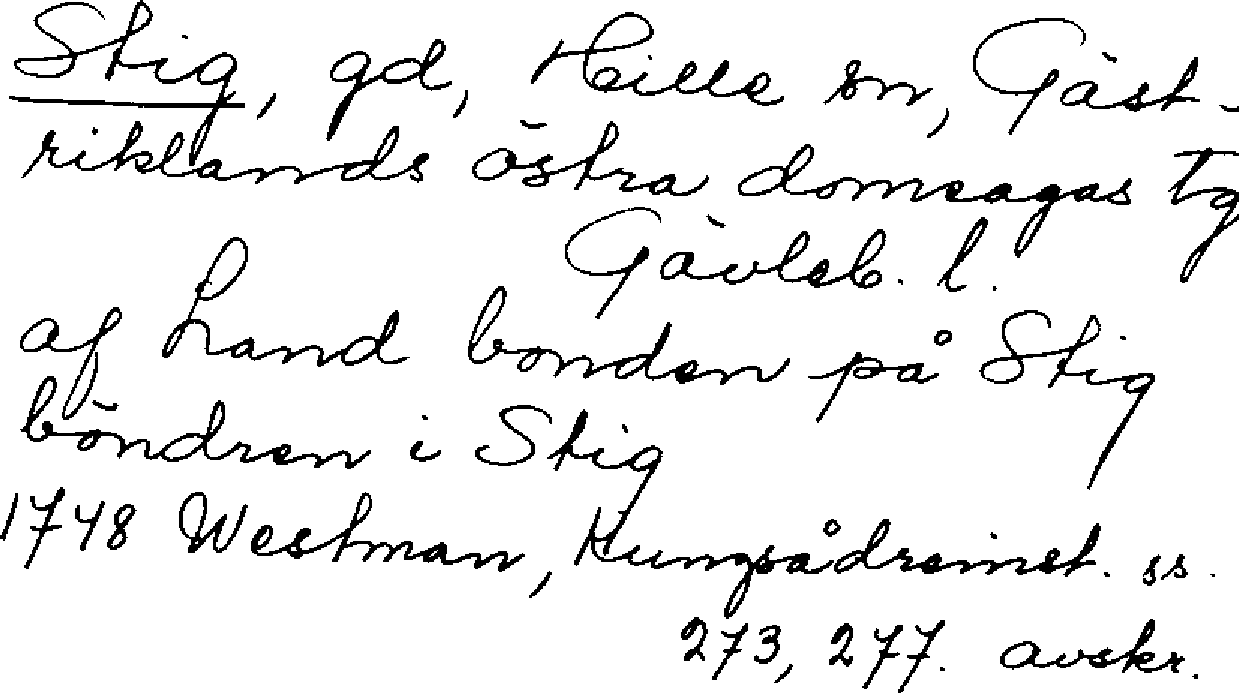 Stig, gd, Hille sn, Gäst-
riklands östra domsagas tg
Gävleb. l.
af Land bonden på Stig
böndren i Stig
1748 Westman, Kungsådreinst. ss.
273, 277. avskr.